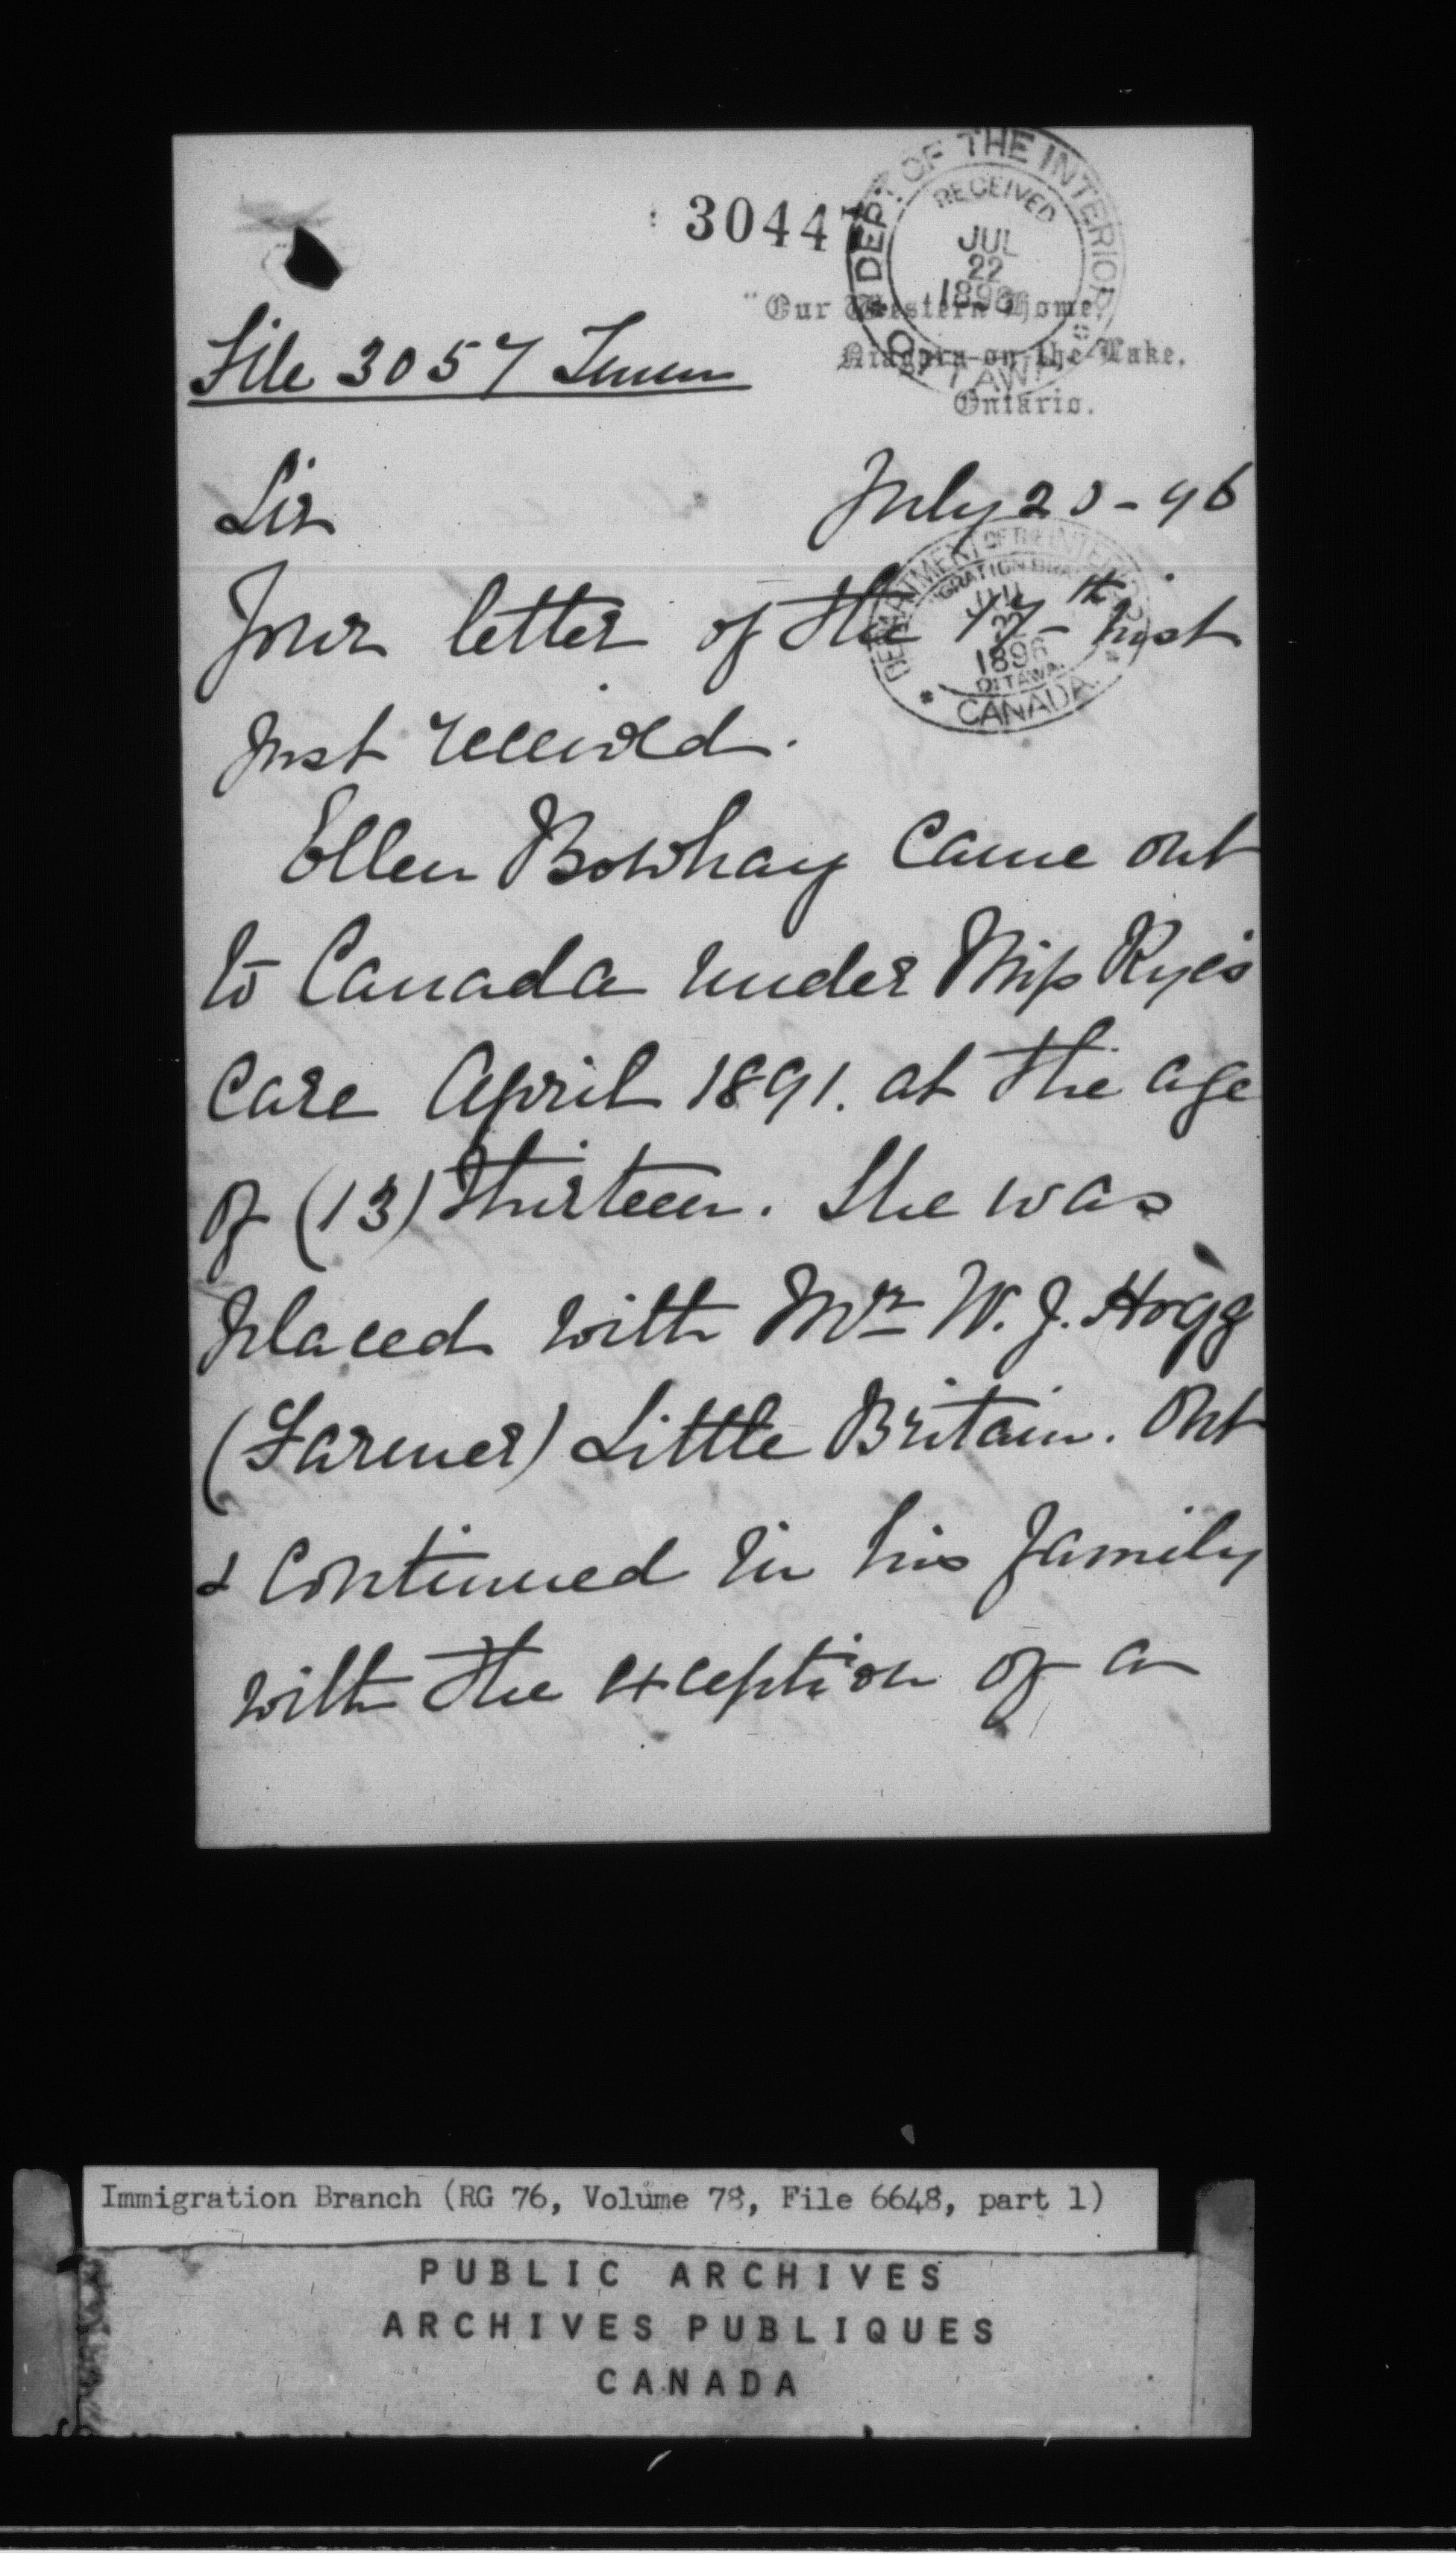 30447
DEPT OF THE INTERIOR
RECEIVED
JUL
22
1896
OTTAWA
"Our Western Home,
Niagara-on-the-Lake,
Ontario.
File 3057 Immn
Sir
July 20-96
DEPARTMENT OF THE INTERIOR
IMMIGRATION BRANCH
JUL
22
1896
OTTAWA.
CANADA
Your letter of the 17th inst
just received.
Ellen Bowhay came out
to Canada under Miss Rye's
care April 1891. at the age
of (13) thirteen. She was
placed with Mr W. J. Hogg
(Farmer) Little Britain. Ont
& continued in his family
with the exception of a
Immigration Branch (RG 76, Volume 78, File 6648, part 1)
PUBLIC ARCHIVES
ARCHIVES PUBLIQUES
CANADA